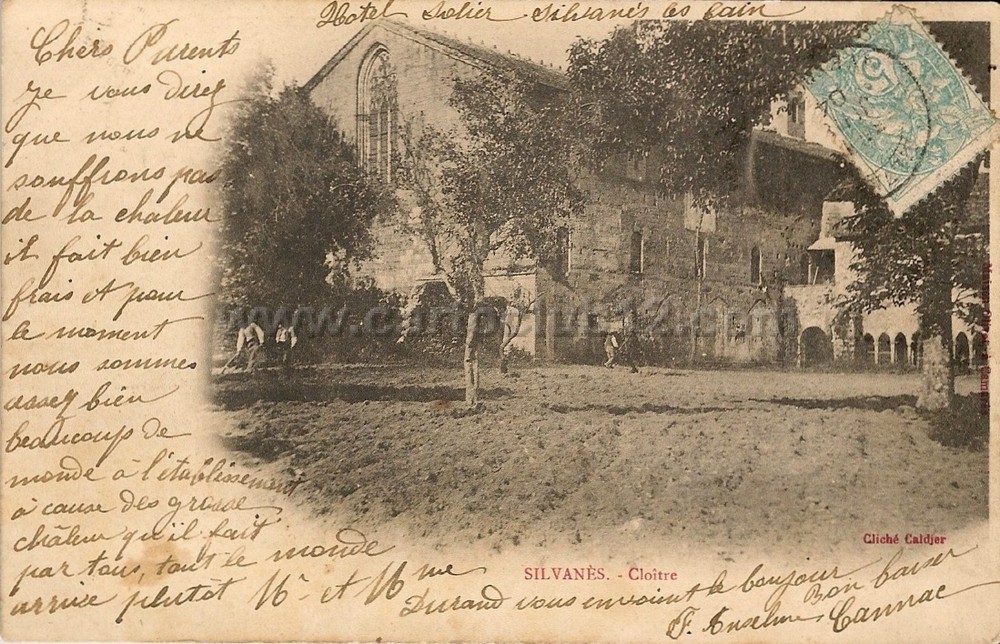 Hotel Solier Silvanés les bain
Chers Parents
Je vous direz
que nous ne
souffrons pas
de la chaleur
il fait bien
frais et pour
le moment
nous sommes
assez bien
beaucoup de
monde à l'établissement
à cause des grosse
chaleur qu'il fait
par tous, tout le monde
arrive plutot Mr et Mme
Durand vous envoient le bonjour
Bon baiser
F. Anselme Cannac
www.cartoclub12.com
Cliché Caldjer
SILVANÈS. - Cloître